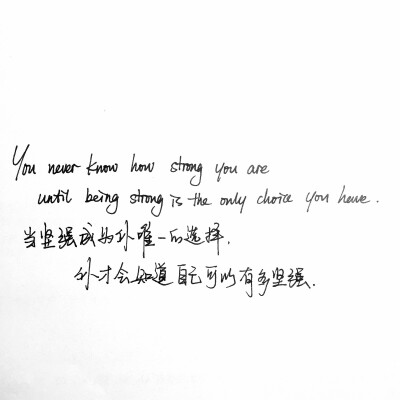 You never know how strong you are
until being strong is the only choice you have.
当坚强成为你唯一的选择,
你才会知道自己可以有多坚强.